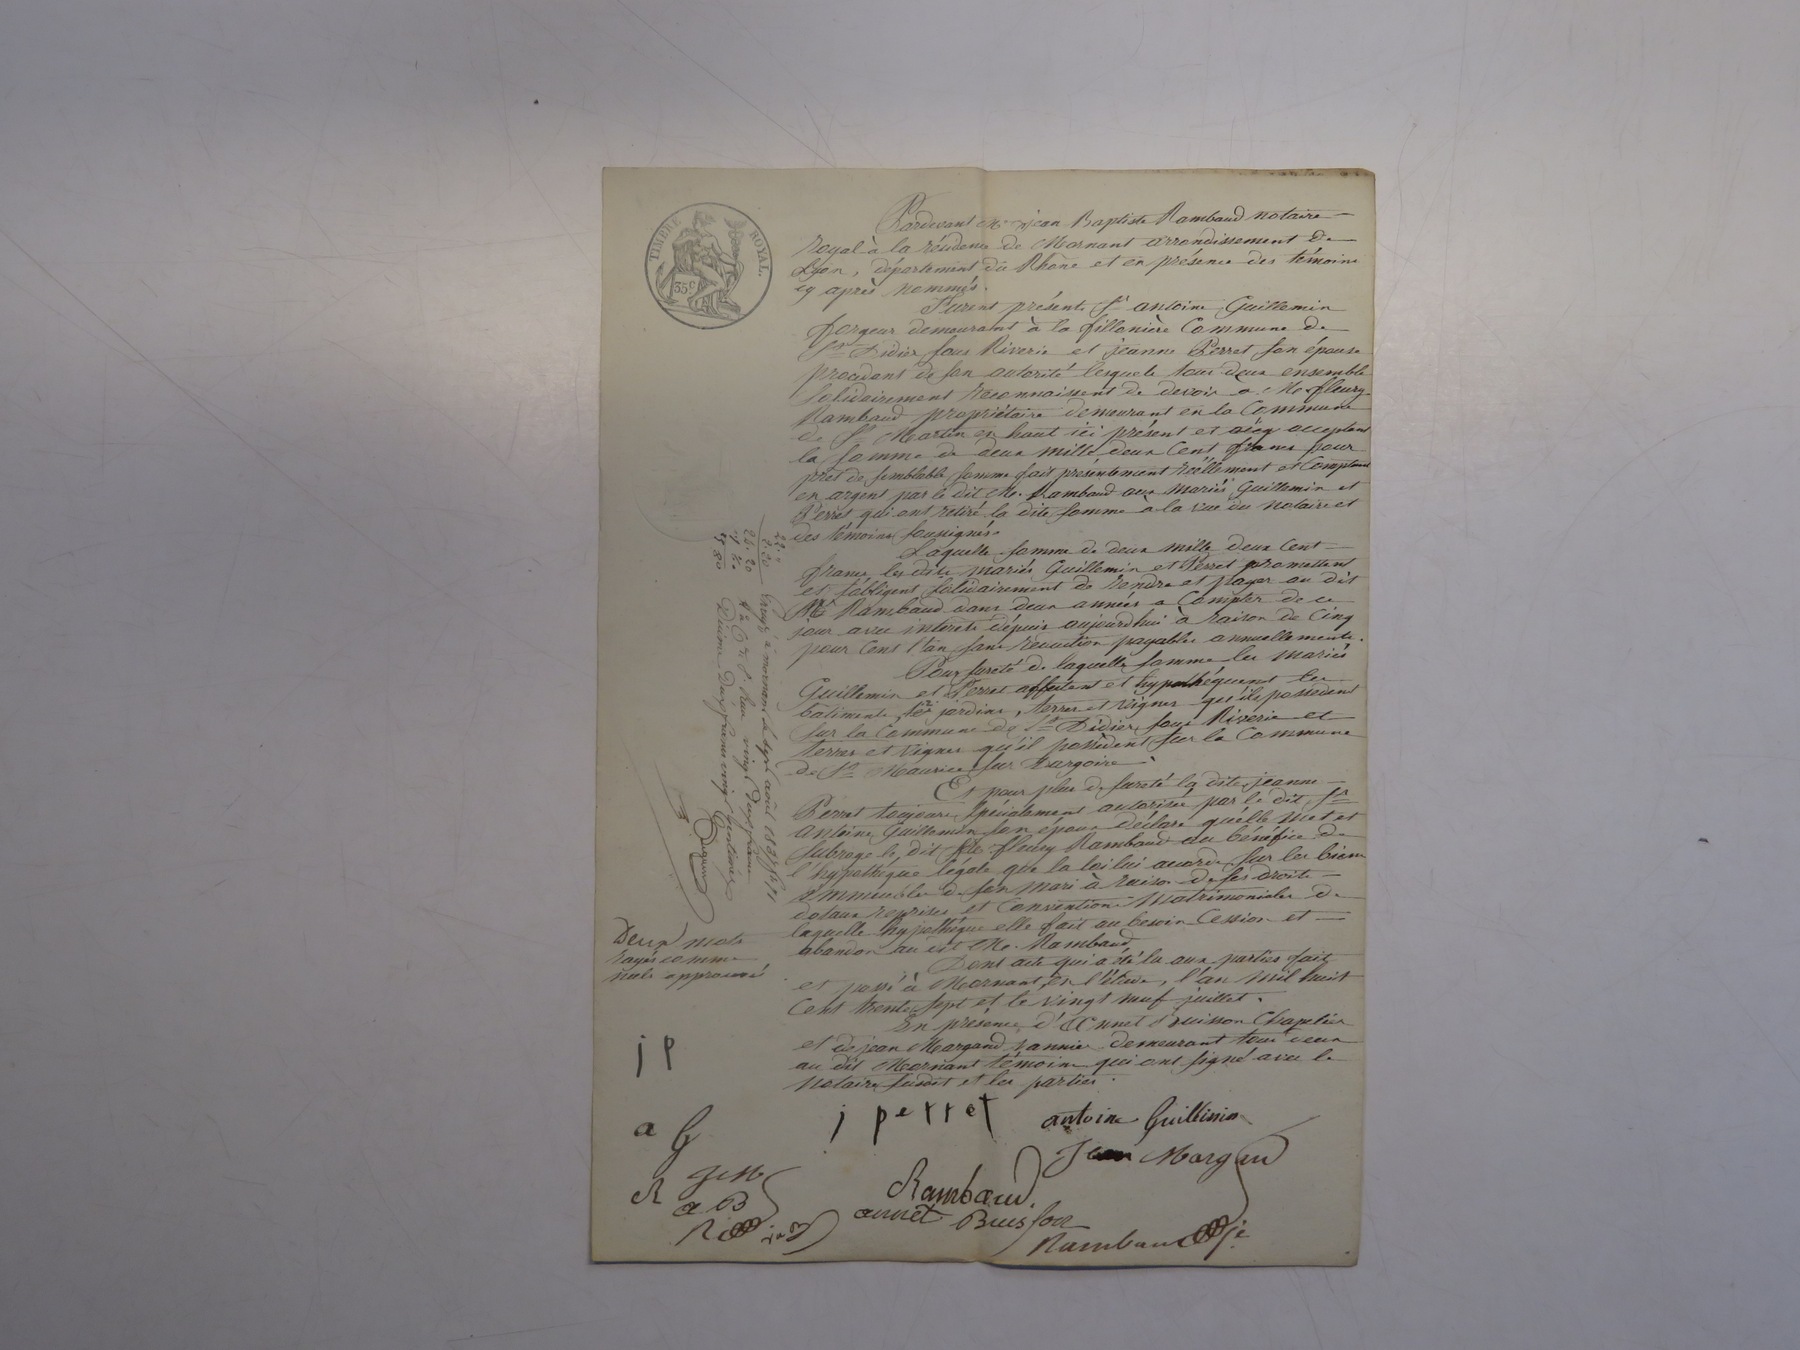 TIMBRE ROYAL.
35 c
Pardevant Me jean Baptiste Rambaud notaire
royal à la résidence de Mornant arrondissement de
Lyon, département du Rhône et en présence des témoins
cy après nommés.
Furent présents Sr antoine Guillemin
forgeur demeurant à la fillonière Commune de
St Didier sous Riverie et jeanne Perret son épouse
procédant de son autorité lesquels tous deux ensemble
solidairement reconnaissent de devoir à Mr fleury
Rambaud propriétaire demeurant en la Commune
de St Martin en haut ici présent et acceptant
la somme de deux mille deux Cent francs pour
prêt de semblable somme fait présentement réellement et Comptant
en argent par le dit Mr. Rambaud aux mariés Guillemin et
Perret qui ont retiré la dite somme à la vue du notaire et
des témoins soussignés.
Laquelle somme de deux mille deux Cent
francs les dits mariés Guillemin et Perret promettent
et s'obligent solidairement de rendre et payer au dit
Mr Rambaud dans deux années à Compter de ce
jour avec intérêts depuis aujourdhui à raison de Cinq
pour Cent l'an sans retenue payables annuellement.
Pour sureté de laquelle somme les mariés
Guillemin et Perret affectent et hypothéquent les
batiments, jardins, terres et vignes qu'ils possèdent
sur la Commune de St Didier sous Riverie et
terres et vignes qu'il possèdent sur la Commune
de St Maurice sur Dargoire.
Et pour plus de sureté la dite jeanne
Perret toujours spécialement autorisée par le dit Sr
antoine Guillemin son époux déclare qu'elle met et
subroge le dit Mr fleury Rambaud au bénéfice de
l'hypothèque légale que la loi lui accorde sur les biens
immeubles de son mari à raison de ses droits
dotaux reprises et Conventions Matrimoniales de
laquelle hypothèque elle fait au besoin Cession et
abandon au dit Mr. Rambaud
Dont acte qui a été lu aux parties fait
et passé à Mornant, en l'étude, l'an mil huit
Cent trente sept et le vingt neuf juillet.
En présence d'Annet Buisson Chapelier
et de jean Margand vannier demeurant tous deux
au dit Mornant témoins qui ont signé avec le
Notaire susdit et les parties.
22. "
2. 20
24. 20
à mornant le sept août 1837
vingt deux francs
Deux mots
rayés comme
nuls approuvé
j p
a G
R
j M
a B
j perret
antoine Guillimin
Jean Margan
Rambaud
annet Buisson
Rambaud